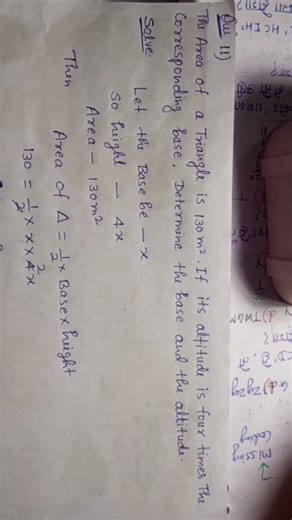 Que 11) The Area of a Triangle is 130m². If its altitude is four times The
Corresponding base, Determine the base and the altitude.
Solve-
Let the Base be - x
So height - 4x
Area - 130m²
Then
Area of Δ = 1/2 x Base x height
130 = 1/2 x x x 4x 2
Missing
Coding